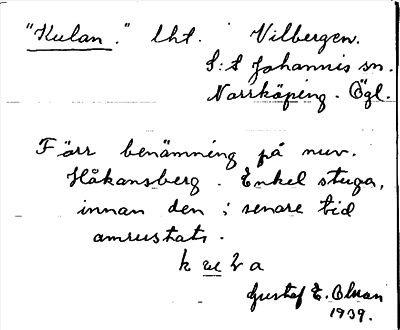 "Kulan." lht. Vilbergen.
S:t Johannis sn.
Norrköping. Ögl.
Förr benämning på nuv.
Håkansberg. Enkel stuga,
innan den i senare tid
omrustats.
Gustaf E. Olsson
1939.